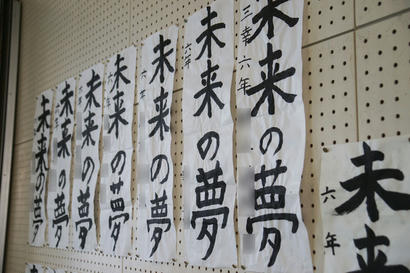 未来の夢
未来の夢
未来の夢
未来の夢
六年
未来の夢
六年
未来の夢
六年
未来の夢
三幸 六年
未来
六年